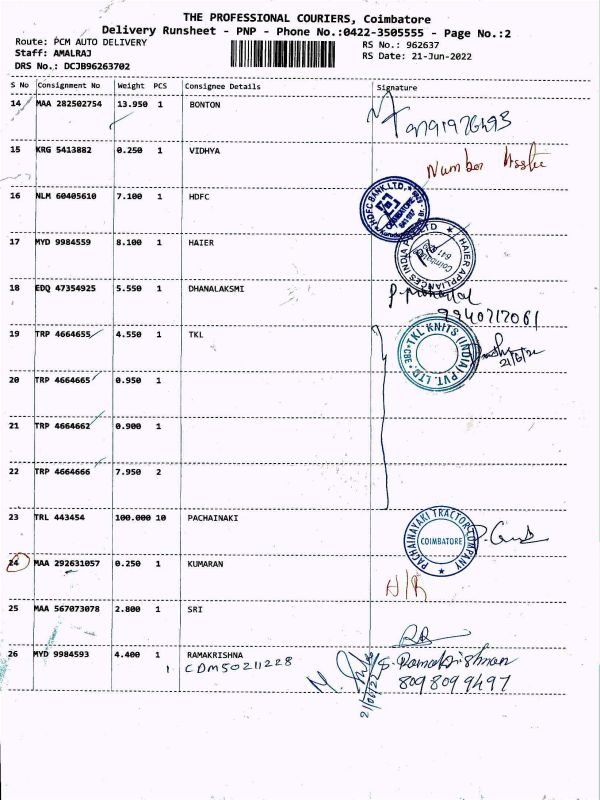 THE PROFESSIONAL COURIERS, Coimbatore
Delivery Runsheet - PNP - Phone No.:0422-3505555 - Page No.:2
Route: PCM AUTO DELIVERY RS No.: 962637
Staff: AMALRAJ RS Date: 21-Jun-2022
DRS No.: DCJB96263702
S No Consignment No Weight PCS Consignee Details Signature
14 MAA 282502754 13.950 1 BONTON
15 KRG 5413882 0.250 1 VIDHYA
Number
16 NLM 60405610 7.100 1 HDFC
HDFC BANK LTD. COIMBATORE
17 MYD 9984559 8.100 1 HAIER
HAIER APPLIANCES INDIA PVT LTD Coimbatore
18 EDQ 47354925 5.550 1 DHANALAKSMI
9940717061
19 TRP 4664655 4.550 1 TKL
TKL KNITS (INDIA) PVT. LTD. CBE
21/6/22
20 TRP 4664665 0.950 1
21 TRP 4664662 0.900 1
22 TRP 4664666 7.950 2
23 TRL 443454 100.000 10 PACHAINAKI
PACHAINAYAKI TRACTOR COMPANY COIMBATORE
24 MAA 292631057 0.250 1 KUMARAN
N/R
25 MAA 567073078 2.800 1 SRI
26 MYD 9984593 4.400 1 RAMAKRISHNA
1 CDM50211228
S. Ramakrishnan
809 809 9497
21/06/22